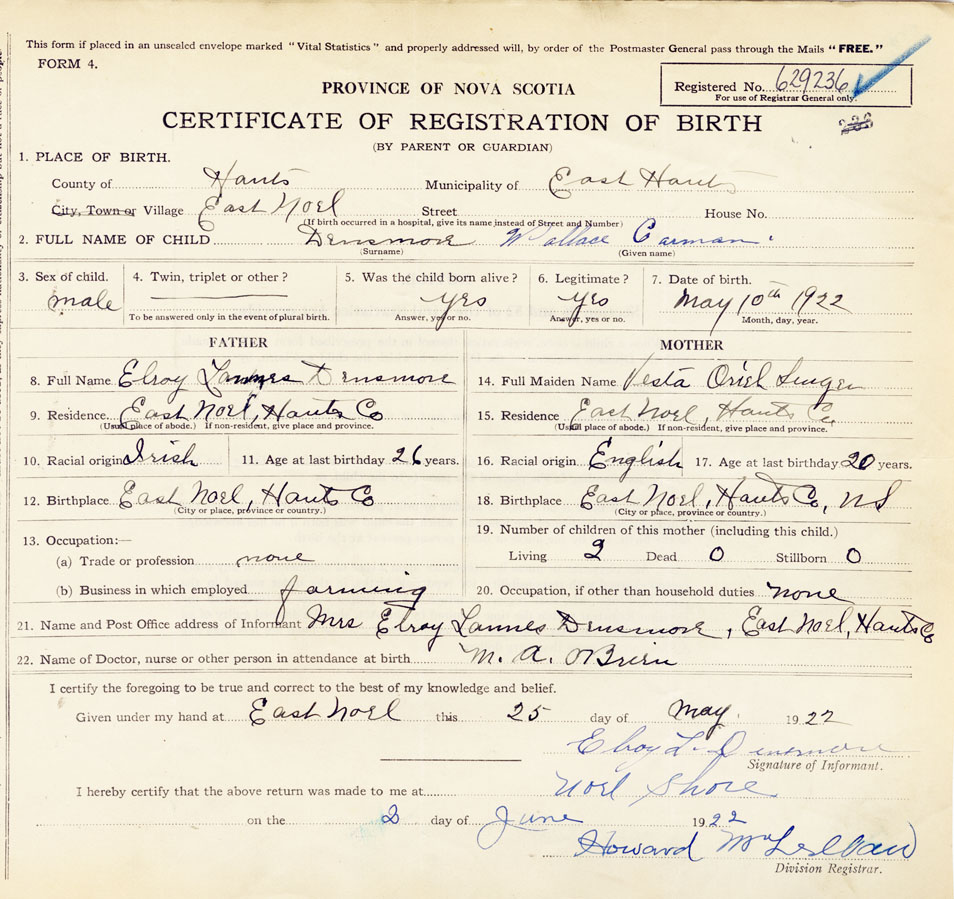 This form if placed in an unsealed envelope marked "Vital Statistics" and properly addressed will, by order of the Postmaster General pass through the Mails "FREE."
FORM 4.
Registered No. 629236
For use of Registrar General only.
PROVINCE OF NOVA SCOTIA
CERTIFICATE OF REGISTRATION OF BIRTH
(BY PARENT OR GUARDIAN)
1. PLACE OF BIRTH.
County of Hants Municipality of East Hants
City, Town or Village East Noel Street House No.
(If birth occurred in a hospital, give its name instead of Street and Number)
2. FULL NAME OF CHILD Densmore Wallace Carman
(Surname) (Given name)
3. Sex of child. 4. Twin, triplet or other? 5. Was the child born alive? 6. Legitimate? 7. Date of birth.
male yes yes May 10th 1922
To be answered only in the event of plural birth. Answer, yes or no. Answer, yes or no. Month, day, year.
FATHER MOTHER
8. Full Name Elroy Lannes Densmore 14. Full Maiden Name Vesta Oriel
9. Residence East Noel, Hants Co 15. Residence East Noel, Hants Co.
(Usual place of abode.) If non-resident, give place and province. (Usual place of abode.) If non-resident, give place and province.
10. Racial origin Irish 11. Age at last birthday 26 years. 16. Racial origin English 17. Age at last birthday 20 years.
12. Birthplace East Noel, Hants Co 18. Birthplace East Noel, Hants Co, NS
(City or place, province or country.) (City or place, province or country.)
13. Occupation:— 19. Number of children of this mother (including this child.)
(a) Trade or profession none Living 2 Dead 0 Stillborn 0
(b) Business in which employed farming 20. Occupation, if other than household duties none
21. Name and Post Office address of Informant Mrs Elroy Lannes Densmore, East Noel, Hants Co
22. Name of Doctor, nurse or other person in attendance at birth M. A. O'Brien
I certify the foregoing to be true and correct to the best of my knowledge and belief.
Given under my hand at East Noel this 25 day of May 1922
Elroy L. Densmore
Signature of Informant.
I hereby certify that the above return was made to me at Noel Shore
on the 2 day of June 1922
Howard McLellan
Division Registrar.